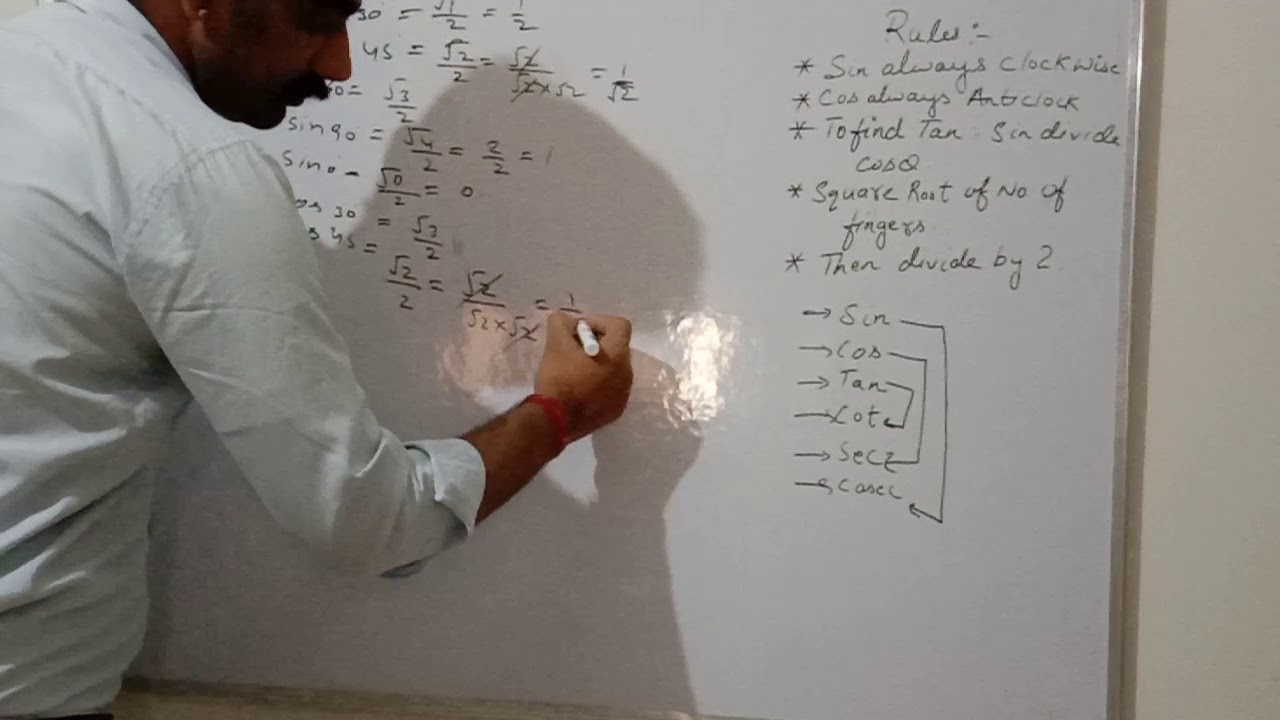 30 = √1/2 = 1/2
45 = √2/2 = √2/√2×√2 = 1/√2
= √3/2
Sin90 = √4/2 = 2/2 = 1
Sin0 = √0/2 = 0
os 30 = √3/2
s 45 = √2/2 = √2/√2×√2 = 1
Rules:-
* Sin always Clockwise
* Cos always Anticlock
* To find Tan : Sin divide
CosQ
* Square Root of No of
fingers
* Then divide by 2
→ Sin
→ Cos
→ Tan
→ Cot
→ Sec
→ Cosec